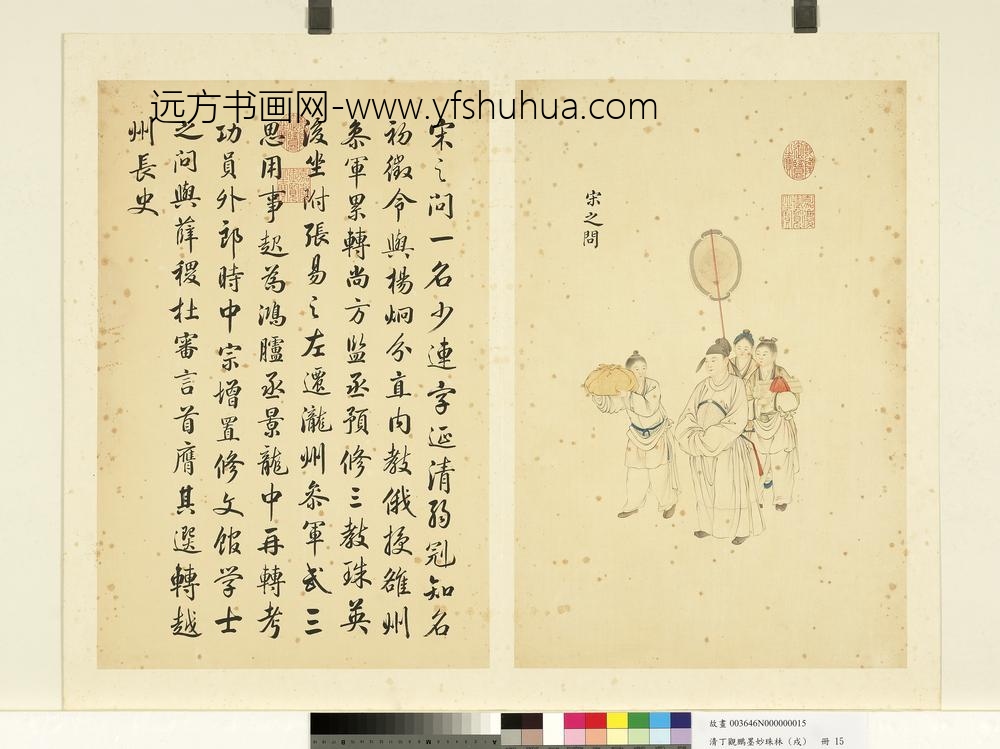 远方书画网-www.yfshuhua.com
宋之問
宋之问一名少連字延清弱冠知名
初徵令與楊炯分直内教俄授雒州
叅軍累轉尚方監丞預修三教珠英
後坐附張易之左遷瀧州叅軍武三
思用事起為鴻臚丞景龍中再轉考
功員外郎時中宗增置修文館学士
之问與薛稷杜審言首膺其選轉越
州長史
故畫 003646N000000015
清丁觀鵬墨妙珠林（戌） 冊 15